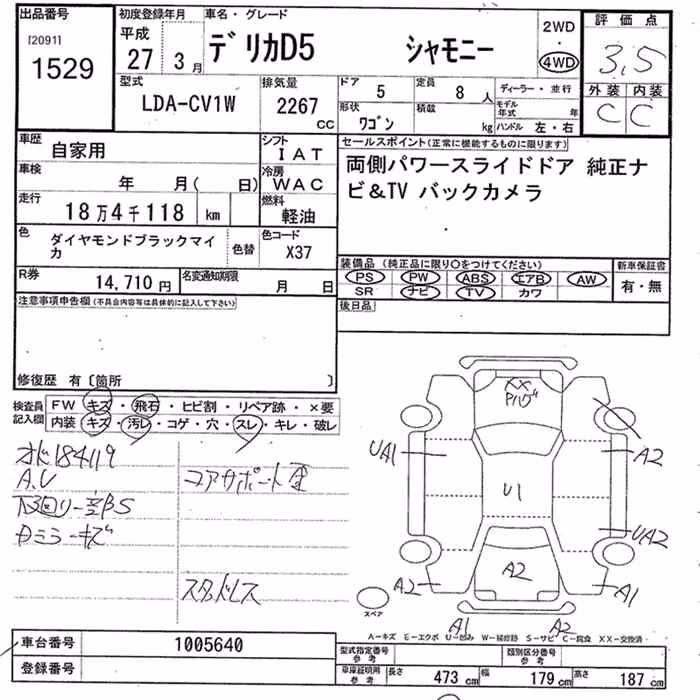 出品番号
[2091]
1529
初度登録年月
平成
27 3月
車名・グレード
デリカD5 シャモニー
2WD
4WD
評価点
3.5
外装 内装
C C
型式
LDA-CV1W
排気量
2267
cc
ドア
5
定員
8 人
形状
ワゴン
積載
kg
ディーラー・並行
モデル年式 年
ハンドル 左・右
車歴
自家用
シフト
IAT
車検
年 月( 日)
冷房
WAC
走行
18万4千118 km
燃料
軽油
色
ダイヤモンドブラックマイカ
色替
色コード
X37
R券
14,710 円
名変通知期限
月 日
セールスポイント(正常に機能するものに限ります)
両側パワースライドドア 純正ナ
ビ&TV バックカメラ
装備品 (純正品に限り○をつけてください)
PS PW ABS エアB AW
SR ナビ TV カワ
新車保証書
有・無
後日品
注意事項申告欄(不具合内容等は具体的に記入して下さい)
修復歴 有〔箇所 〕
検査員記入欄
FW キズ・飛石・ヒビ割・リペア跡・×要
内装 キズ・汚レ・コゲ・穴・スレ・キレ・破レ
オド184119
A.U
下回り一部S
コアサポート
スタッドレス
XX
UA1
A2
U1
UA2
A2
A2
A1
A1
A2
スペア
A-キズ E-エクボ U-凹み W-補修跡 S-サビ C-腐食 XX-交換済
車台番号
1005640
登録番号
型式指定番号
参考
類別区分番号
参考
車庫証明用
参考
長さ 473 cm 幅 179 cm 高さ 187 cm